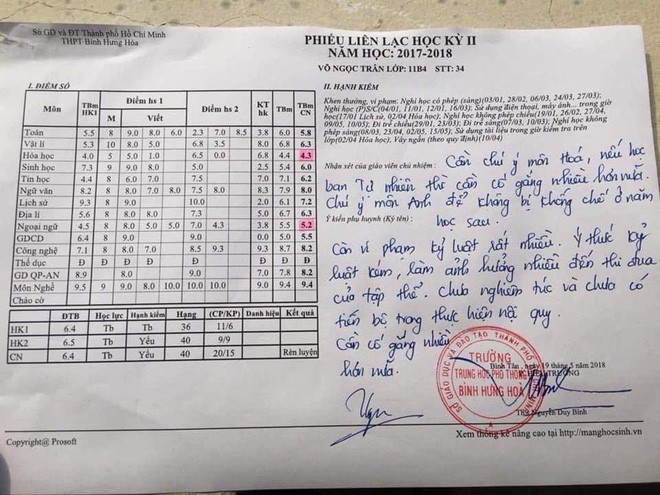 Sở GD và ĐT Thành phố Hồ Chí Minh
THPT Bình Hưng Hòa
PHIẾU LIÊN LẠC HỌC KỲ II
NĂM HỌC: 2017-2018
VÕ NGỌC TRÂN LỚP: 11B4 STT: 34
I. ĐIỂM SỐ
Môn TBm HK1 Điểm hs 1 Điểm hs 2 KT hk TBm TBm CN
M Viết
Toán 5.5 8 9.0 8.0 6.0 2.3 7.0 8.5 3.8 6.0 5.8
Vật lí 5.3 10 8.0 5.0 6.8 3.5 8.0 6.8 6.3
Hóa học 4.0 5 5.0 1.0 0.0 6.8 4.4 4.3
Sinh học 7.3 9 9.0 8.0 5.0 2.5 5.4 6.0
Tin học 4.4 8 7.0 5.5 7.0 7.1 6.2
Ngữ văn 8.2 8 8.0 7.0 8.0 7.5 8.0 8.3 7.9 8.0
Lịch sử 9.3 9.0 10.0 2.0 6.1 7.2
Địa lí 5.6 8 8.0 8.0 7.3 5.0 6.7 6.3
Ngoại ngữ 4.5 8 8.0 5.0 5.0 7.0 4.3 3.8 5.5 5.2
GDCD 6.4 9.0 9.0 0.0 5.0 5.5
Công nghệ 7.1 8 8.0 7.0 8.5 9.3 9.3 8.7 8.2
Thể dục Đ Đ Đ Đ Đ Đ
GD QP-AN 8.9 8.0 9.0 7.0 7.8 8.2
Môn Nghề 9.5 9 9.0 8.0 10.0 10.0 10.0 9.0 9.4 9.4
Chào cờ
ĐTB Học lực Hạnh kiểm Hạng (CP/KP) Danh hiệu Kết quả
HK1 6.4 Tb Tb 36 11/6
HK2 6.5 Tb Yếu 40 9/9
CN 6.4 Tb Yếu 40 20/15 Rèn luyện
II. HẠNH KIỂM
Khen thưởng, vi phạm: Nghỉ học có phép (sáng)(03/01, 28/02, 06/03, 24/03, 27/03);
Nghỉ học (P)S/C(04/01, 11/01, 12/01, 16/03); Sử dụng điện thoại, máy ảnh... trong giờ
học(17/01 Lịch sử, 02/04 Hóa học); Nghỉ học không phép chiều(19/01, 26/02, 27/04,
09/05, 10/05); Đi trễ chiều(29/01, 23/03); Đi trễ sáng(07/03, 10/03); Nghỉ học không
phép sáng(08/03, 23/04, 02/05, 15/05); Sử dụng tài liệu trong giờ kiểm tra trên
lớp(02/04 Hóa học); Vắng ngoạn (theo quy định)(10/04)
Nhận xét của giáo viên chủ nhiệm: Cần chú ý môn Hoá, nếu học
ban Tự nhiên thì cần cố gắng nhiều hơn nữa.
Chú ý môn Anh để không bị khống chế ở năm
Ý kiến phụ huynh (Ký tên): học sau.
Còn vi phạm kỷ luật rất nhiều. Ý thức kỷ
luật kém, làm ảnh hưởng nhiều đến thi đua
của tập thể. Chưa nghiêm túc và chưa có
tiến bộ trong thực hiện nội quy.
Cần cố gắng nhiều
hơn nữa.
Bình Tân, ngày 19 tháng 5 năm 2018
HIỆU TRƯỞNG
SỞ GIÁO DỤC VÀ ĐÀO TẠO THÀNH PHỐ
TRƯỜNG
TRUNG HỌC PHỔ THÔNG
BÌNH HƯNG HOÀ
ThS Nguyễn Duy Bình
Copyright@ Prosoft
Xem thống kê nâng cao tại http://manghocsinh.vn